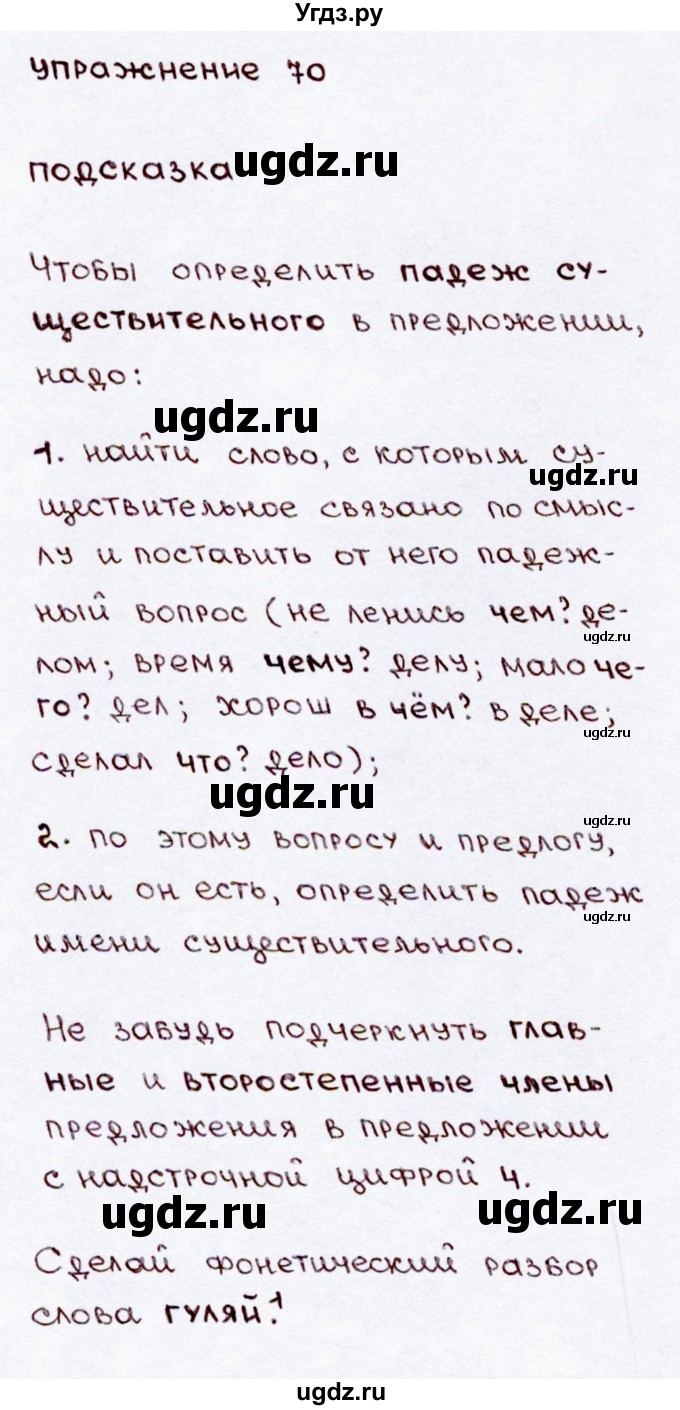 Угдз.ру
упражнение 70
подсказка ugdz.ru
Чтобы определить падеж су-
ществительного в предложении,
надо:
ugdz.ru
1. найти слово, с которым су-
ugdz.ru
ществительное связано по смыс-
лу и поставить от него падеж-
ный вопрос (не ленись чем? де-
ugdz.ru
лом; время чему? делу; мало че-
го? дел; хорош в чём? в деле;
ugdz.ru
сделал что? дело);
ugdz.ru
ugdz.ru
2. по этому вопросу и предлогу,
если он есть, определить падеж
ugdz.ru
имени существительного.
Не забудь подчеркнуть глав-
ные и второстепенные члены
предложения в предложении
с надстрочной цифрой 4.
ugdz.ru ugdz.ru
Сделай фонетический разбор
слова гуляй.¹
ugdz.ru